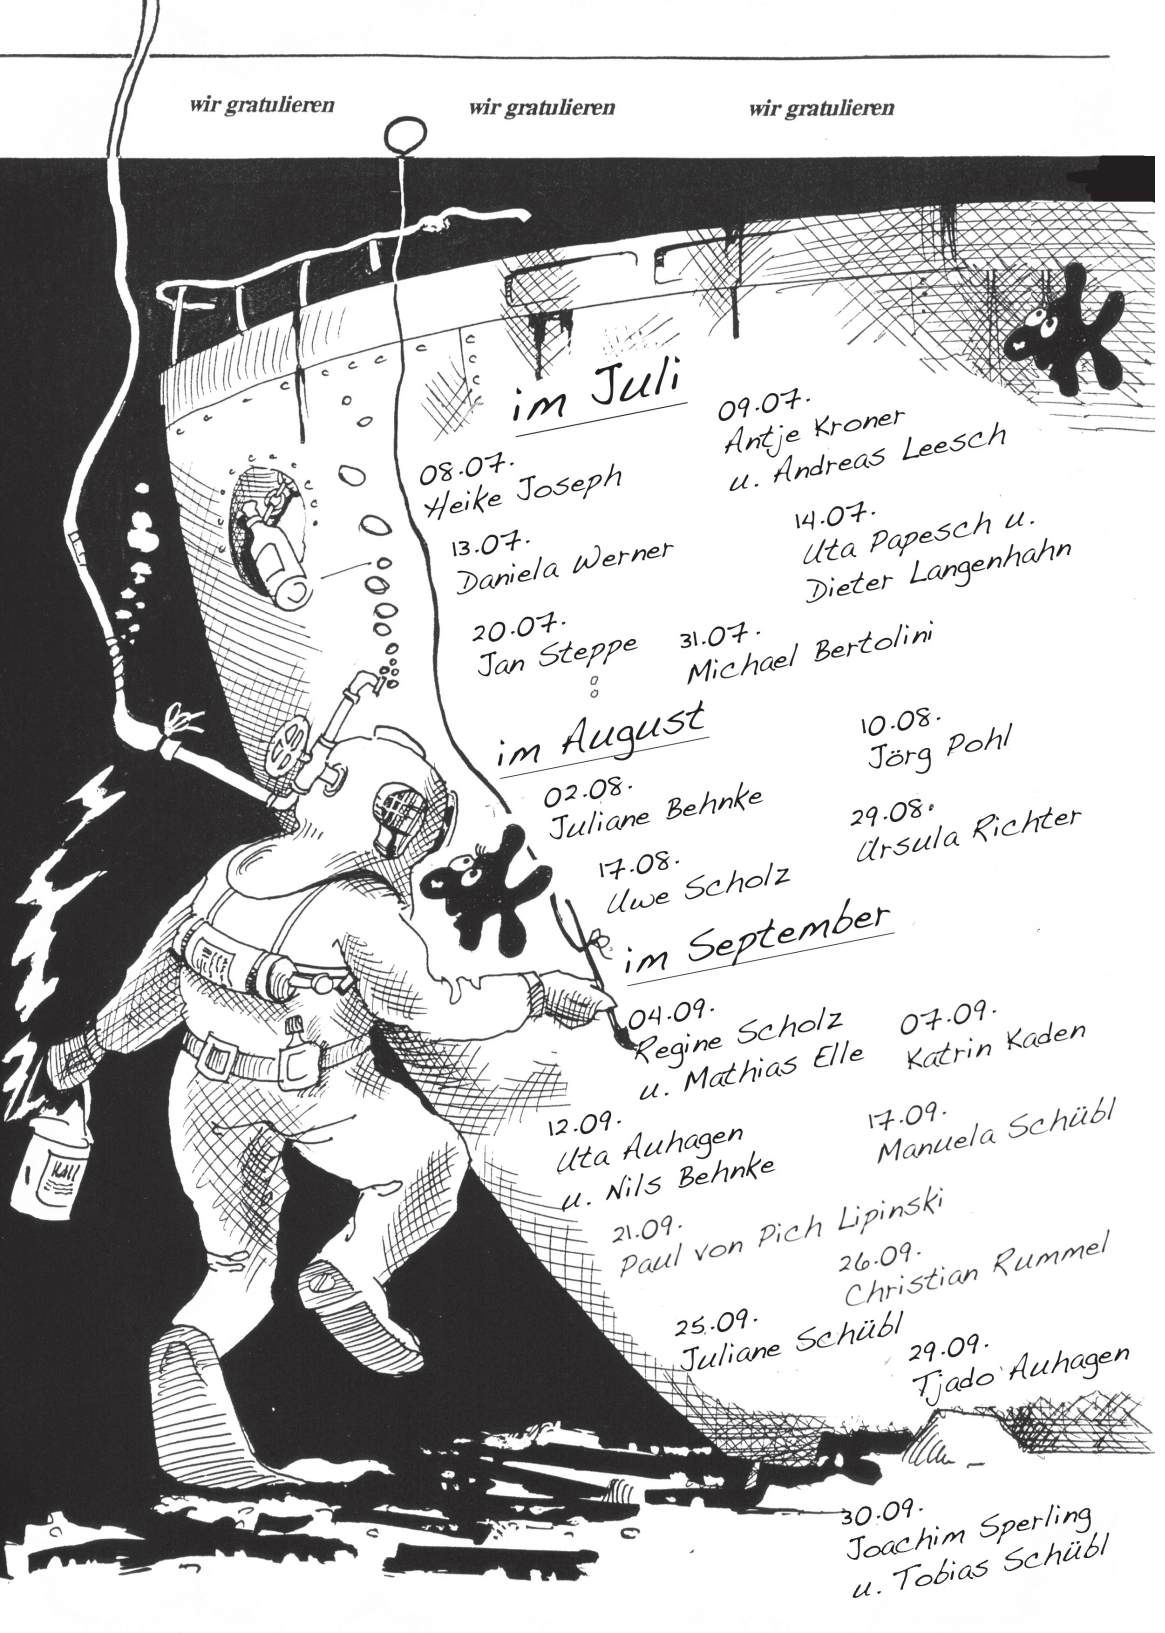 wir gratulieren wir gratulieren wir gratulieren
im Juli
08.07.
Heike Joseph
09.07.
Antje Kroner
u. Andreas Leesch
13.07.
Daniela Werner
14.07.
Uta Papesch u.
Dieter Langenhahn
20.07.
Jan Steppe
31.07.
Michael Bertolini
im August
02.08.
Juliane Behnke
10.08.
Jörg Pohl
17.08.
Uwe Scholz
29.08.
Ursula Richter
im September
04.09.
Regine Scholz
u. Mathias Elle
07.09.
Katrin Kaden
12.09.
Uta Auhagen
u. Nils Behnke
17.09.
Manuela Schübl
21.09.
Paul von Pich Lipinski
26.09.
Christian Rummel
25.09.
Juliane Schübl
29.09.
Tjado Auhagen
30.09.
Joachim Sperling
u. Tobias Schübl